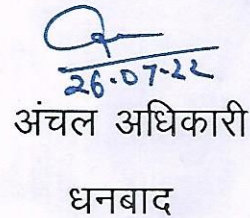 26-07-22
अंचल अधिकारी
धनबाद